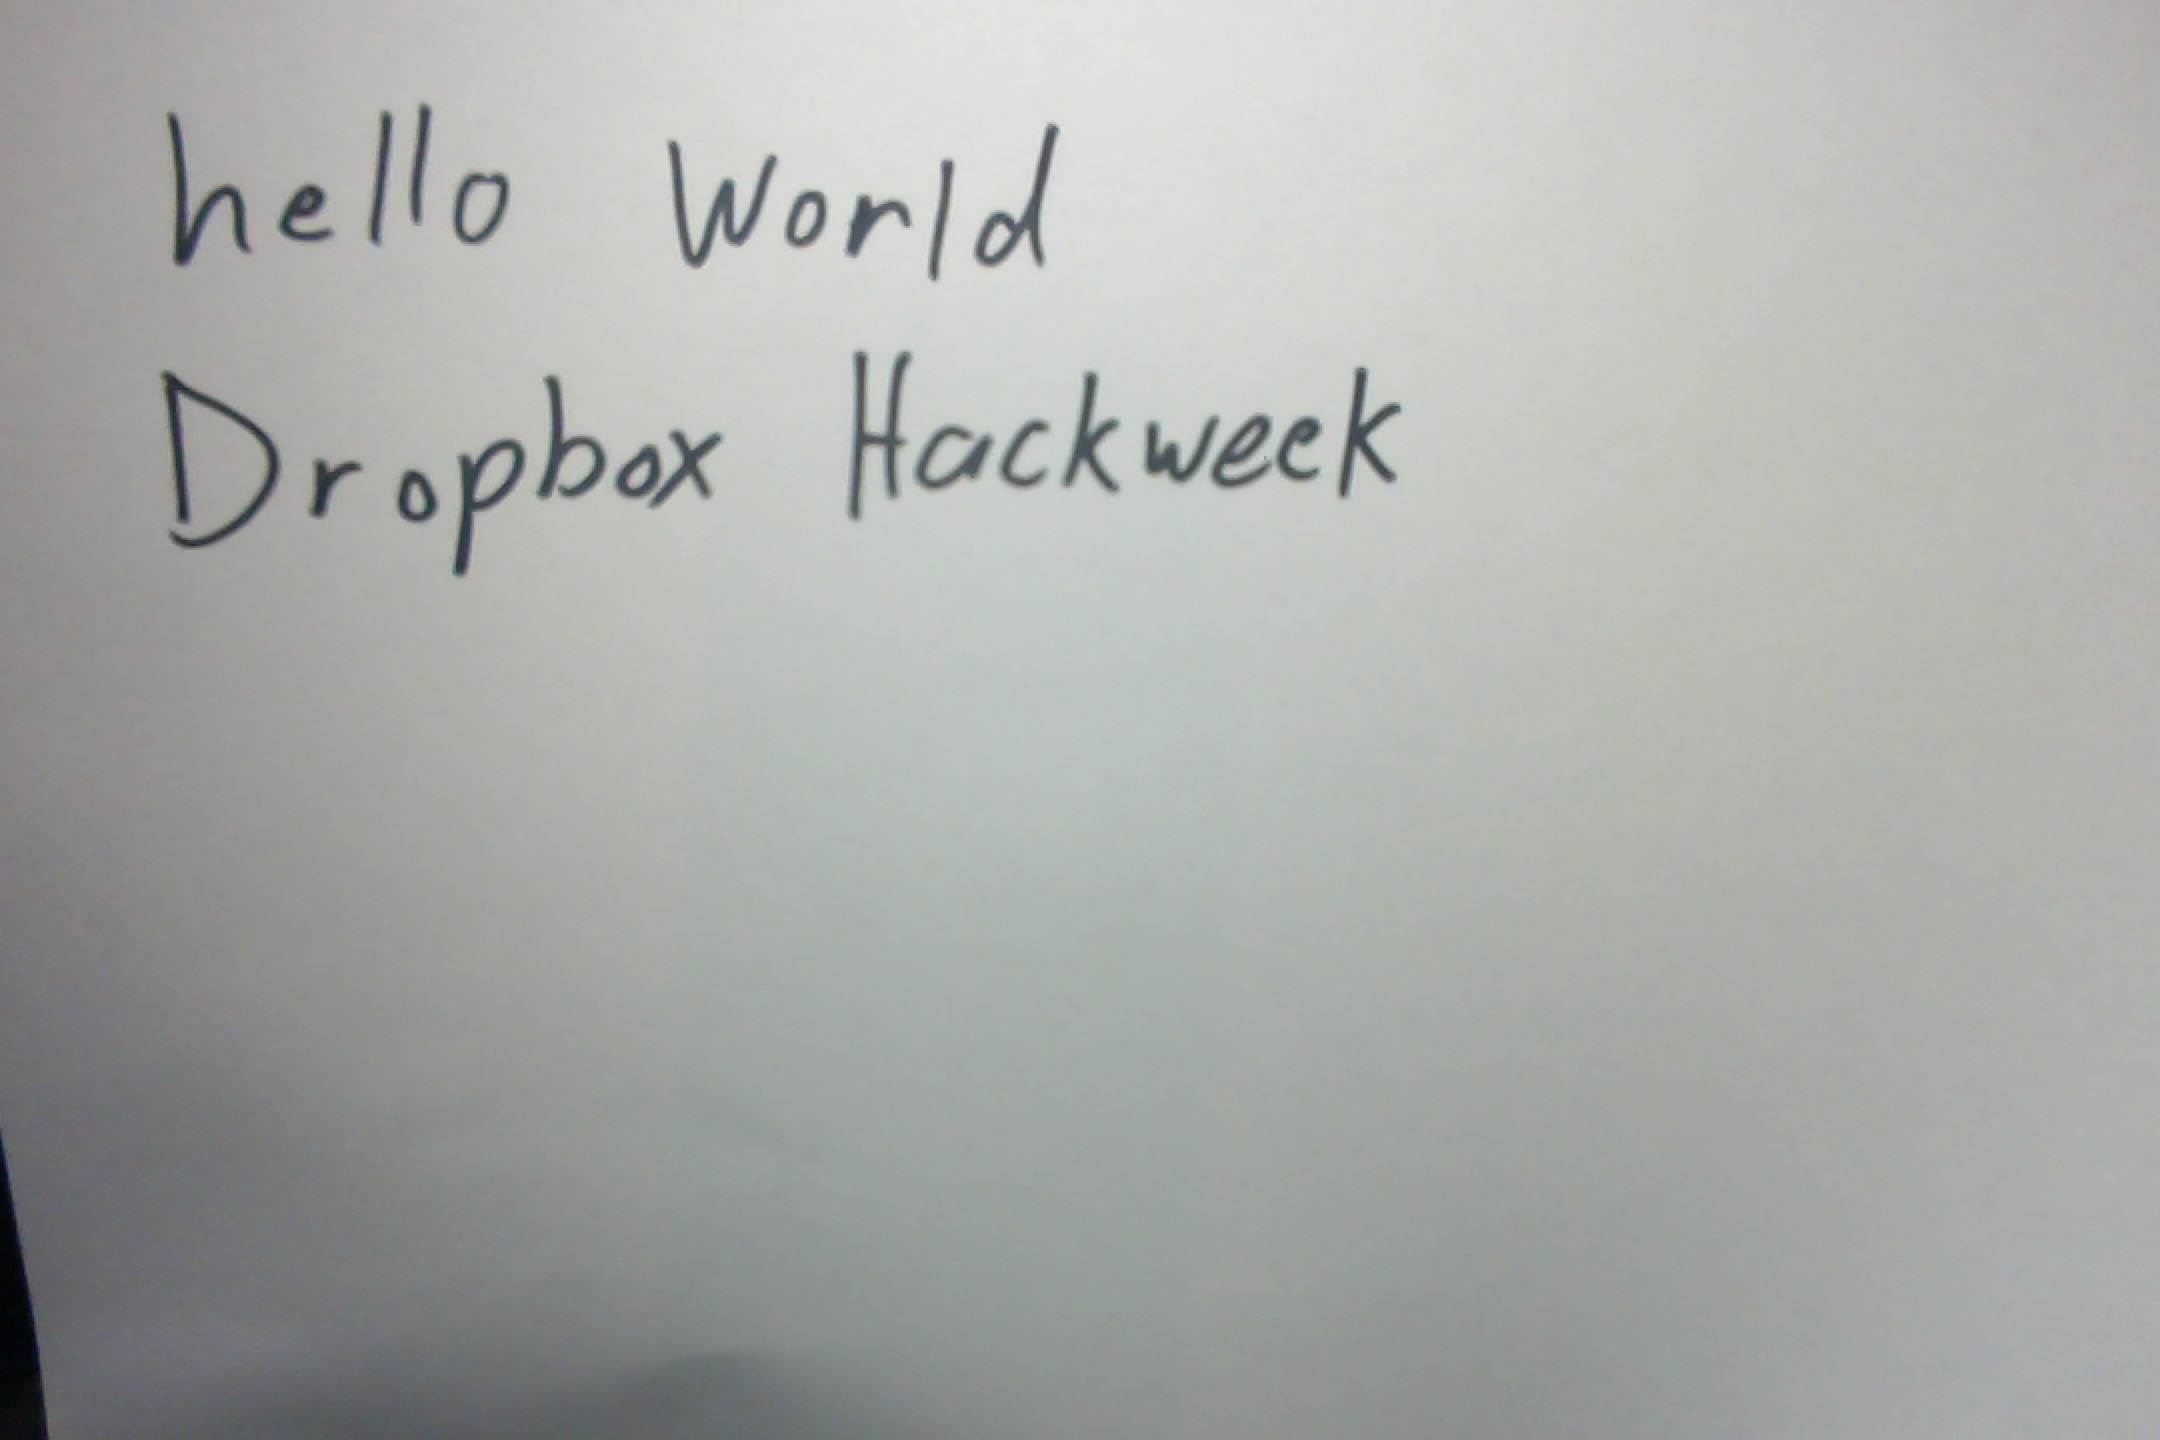 hello World
Dropbox Hackweek